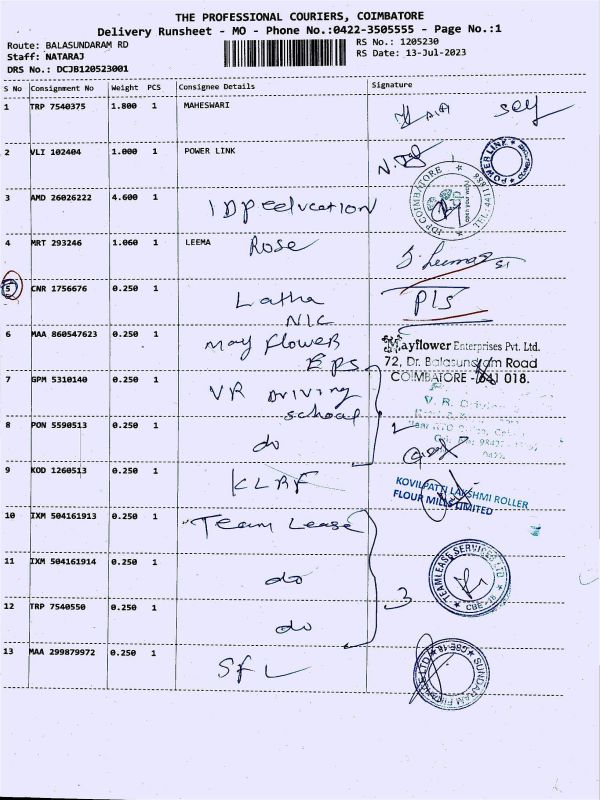 THE PROFESSIONAL COURIERS, COIMBATORE
Delivery Runsheet - MO - Phone No.:0422-3505555 - Page No.:1
Route: BALASUNDARAM RD
Staff: NATARAJ
DRS No.: DCJB120523001
RS No.: 1205230
RS Date: 13-Jul-2023
S No Consignment No Weight PCS Consignee Details Signature
1 TRP 7540375 1.800 1 MAHESWARI
2 VLI 102404 1.000 1 POWER LINK
POWER LINK
3 AMD 26026222 4.600 1 IDP education
IDP COIMBATORE
4 MRT 293246 1.060 1 LEEMA Rose
5 CNR 1756676 0.250 1 Latha
NIC
6 MAA 860547623 0.250 1 may flower
Mayflower Enterprises Pvt. Ltd.
72, Dr. Balasundram Road
COIMBATORE - 641 018.
7 GPM 5310140 0.250 1 VR Driving
school
8 PON 5590513 0.250 1 do
9 KOD 1260513 0.250 1 KLRF
KOVILPATTI LAKSHMI ROLLER
FLOUR MILLS LIMITED
10 IXM 504161913 0.250 1 Team Lease
11 IXM 504161914 0.250 1 do
3
TEAMLEASE SERVICES LTD
CBE-18
12 TRP 7540550 0.250 1 do
13 MAA 299879972 0.250 1 SFL
SUNDARAM FINANCE LTD
CBE-18